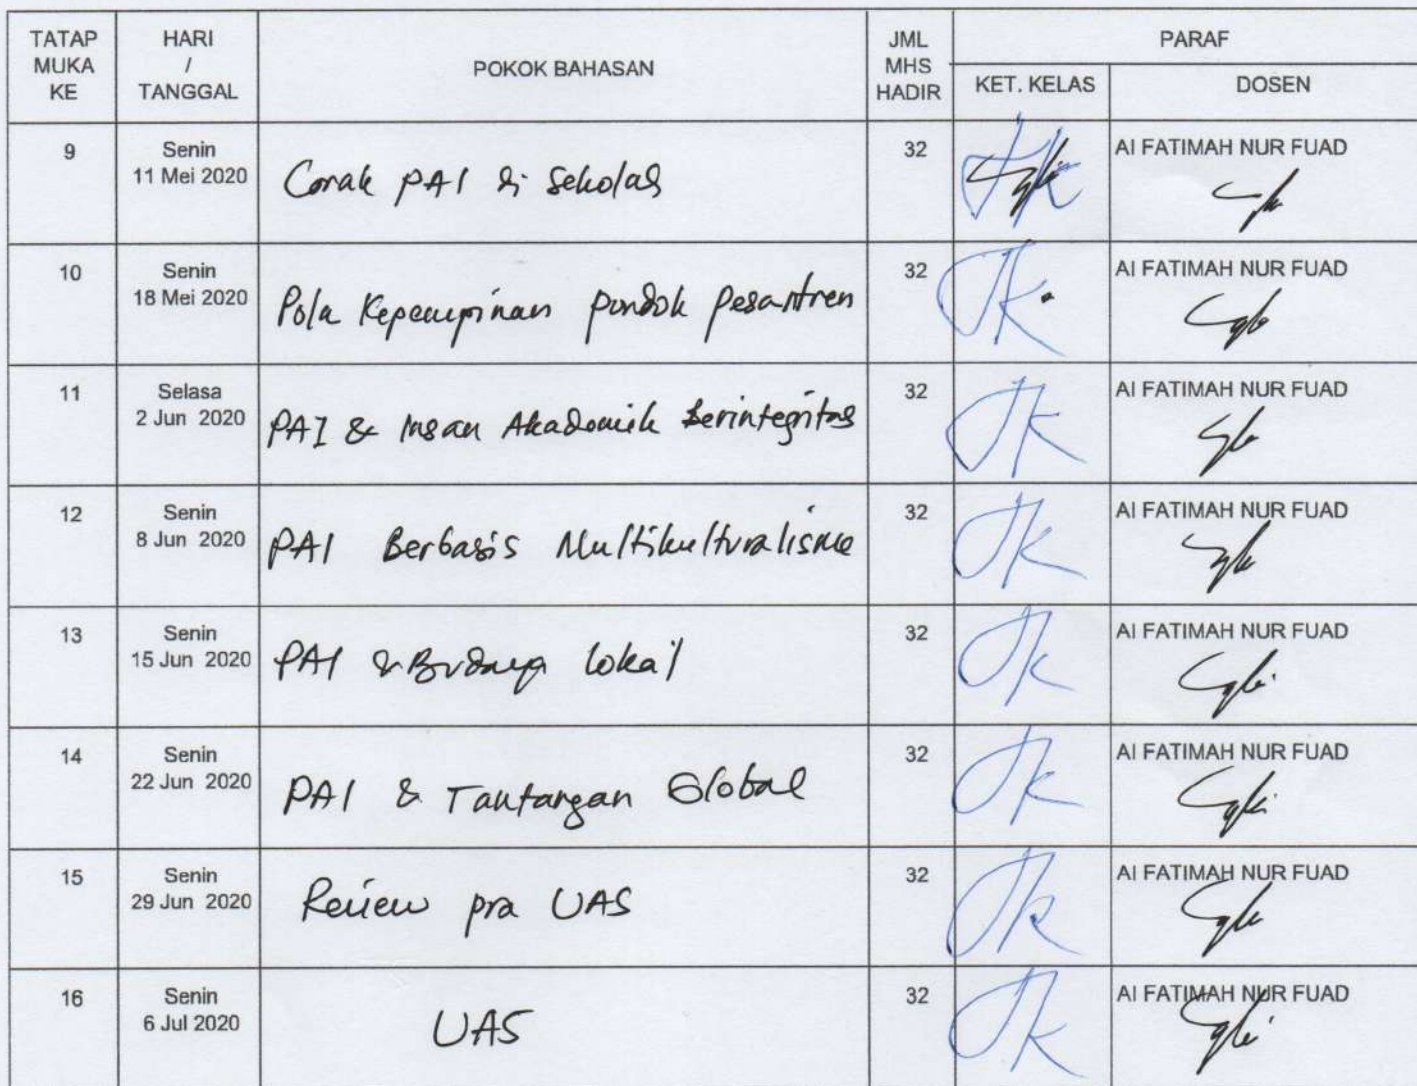 TATAP MUKA KE
HARI / TANGGAL
POKOK BAHASAN
JML MHS HADIR
PARAF
KET. KELAS
DOSEN
9
Senin
11 Mei 2020
Corak PAI di Sekolah
32
AI FATIMAH NUR FUAD
10
Senin
18 Mei 2020
Pola Kepempinan pondok pesantren
32
AI FATIMAH NUR FUAD
11
Selasa
2 Jun 2020
PAI & Insan Akademik Berintegritas
32
AI FATIMAH NUR FUAD
12
Senin
8 Jun 2020
PAI Berbasis Multikulturalisme
32
AI FATIMAH NUR FUAD
13
Senin
15 Jun 2020
PAI & Budaya lokal
32
AI FATIMAH NUR FUAD
14
Senin
22 Jun 2020
PAI & Tantangan Global
32
AI FATIMAH NUR FUAD
15
Senin
29 Jun 2020
Review pra UAS
32
AI FATIMAH NUR FUAD
16
Senin
6 Jul 2020
UAS
32
AI FATIMAH NUR FUAD